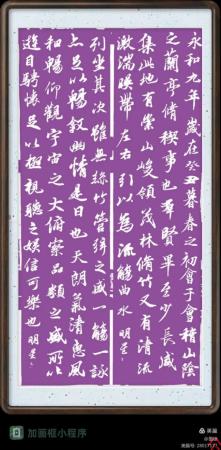 永和九年歲在癸丑暮春之初會于會稽山陰
之蘭亭脩稧事也羣賢畢至少長咸
集此地有崇山峻領茂林脩竹又有清流
激湍暎帶左右引以為流觴曲水
列坐其次雖無絲竹管弦之盛一觴一詠
亦足以暢敘幽情是日也天朗氣清惠風
和暢仰觀宇宙之大俯察品類之盛所以
遊目騁懷足以極視聽之娛信可樂也
加画框小程序
美篇